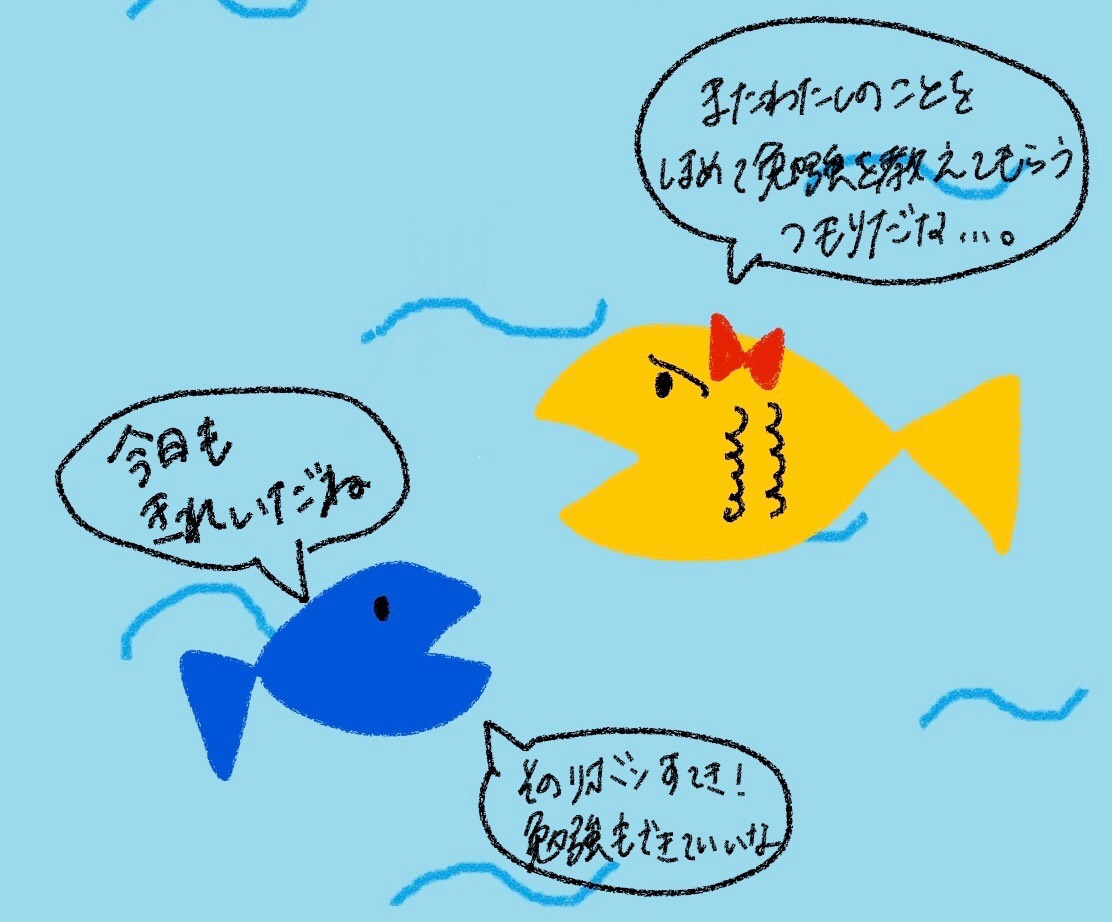 またわたしのことを
ほめて勉強を教えてもらう
つもりだな…。
今日も
きれいだね
そのリボンすてき!
勉強もできていいな